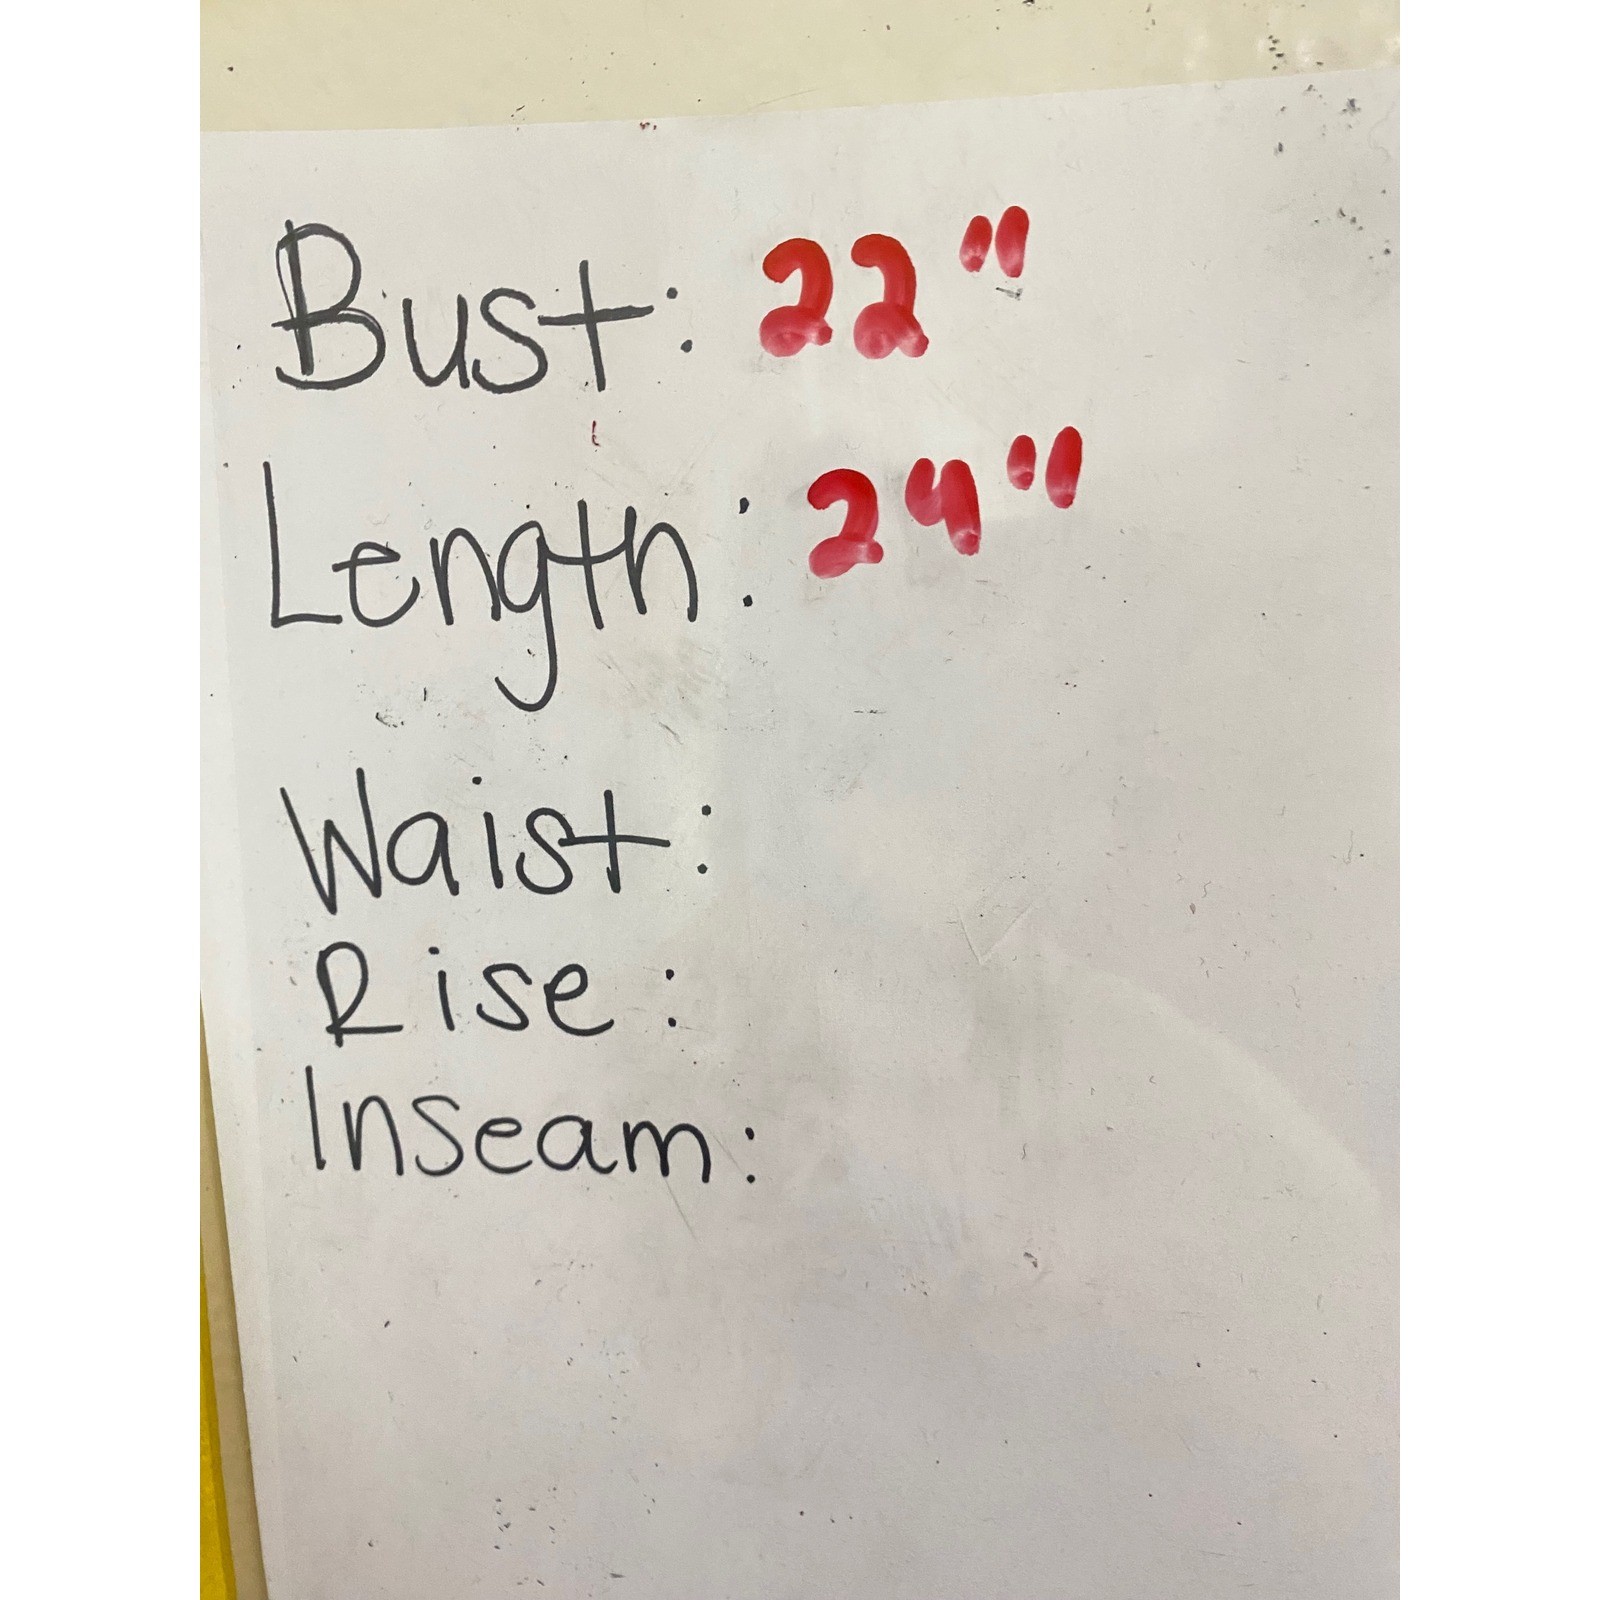 Bust: 22"
Length: 24"
Waist:
Rise:
Inseam: